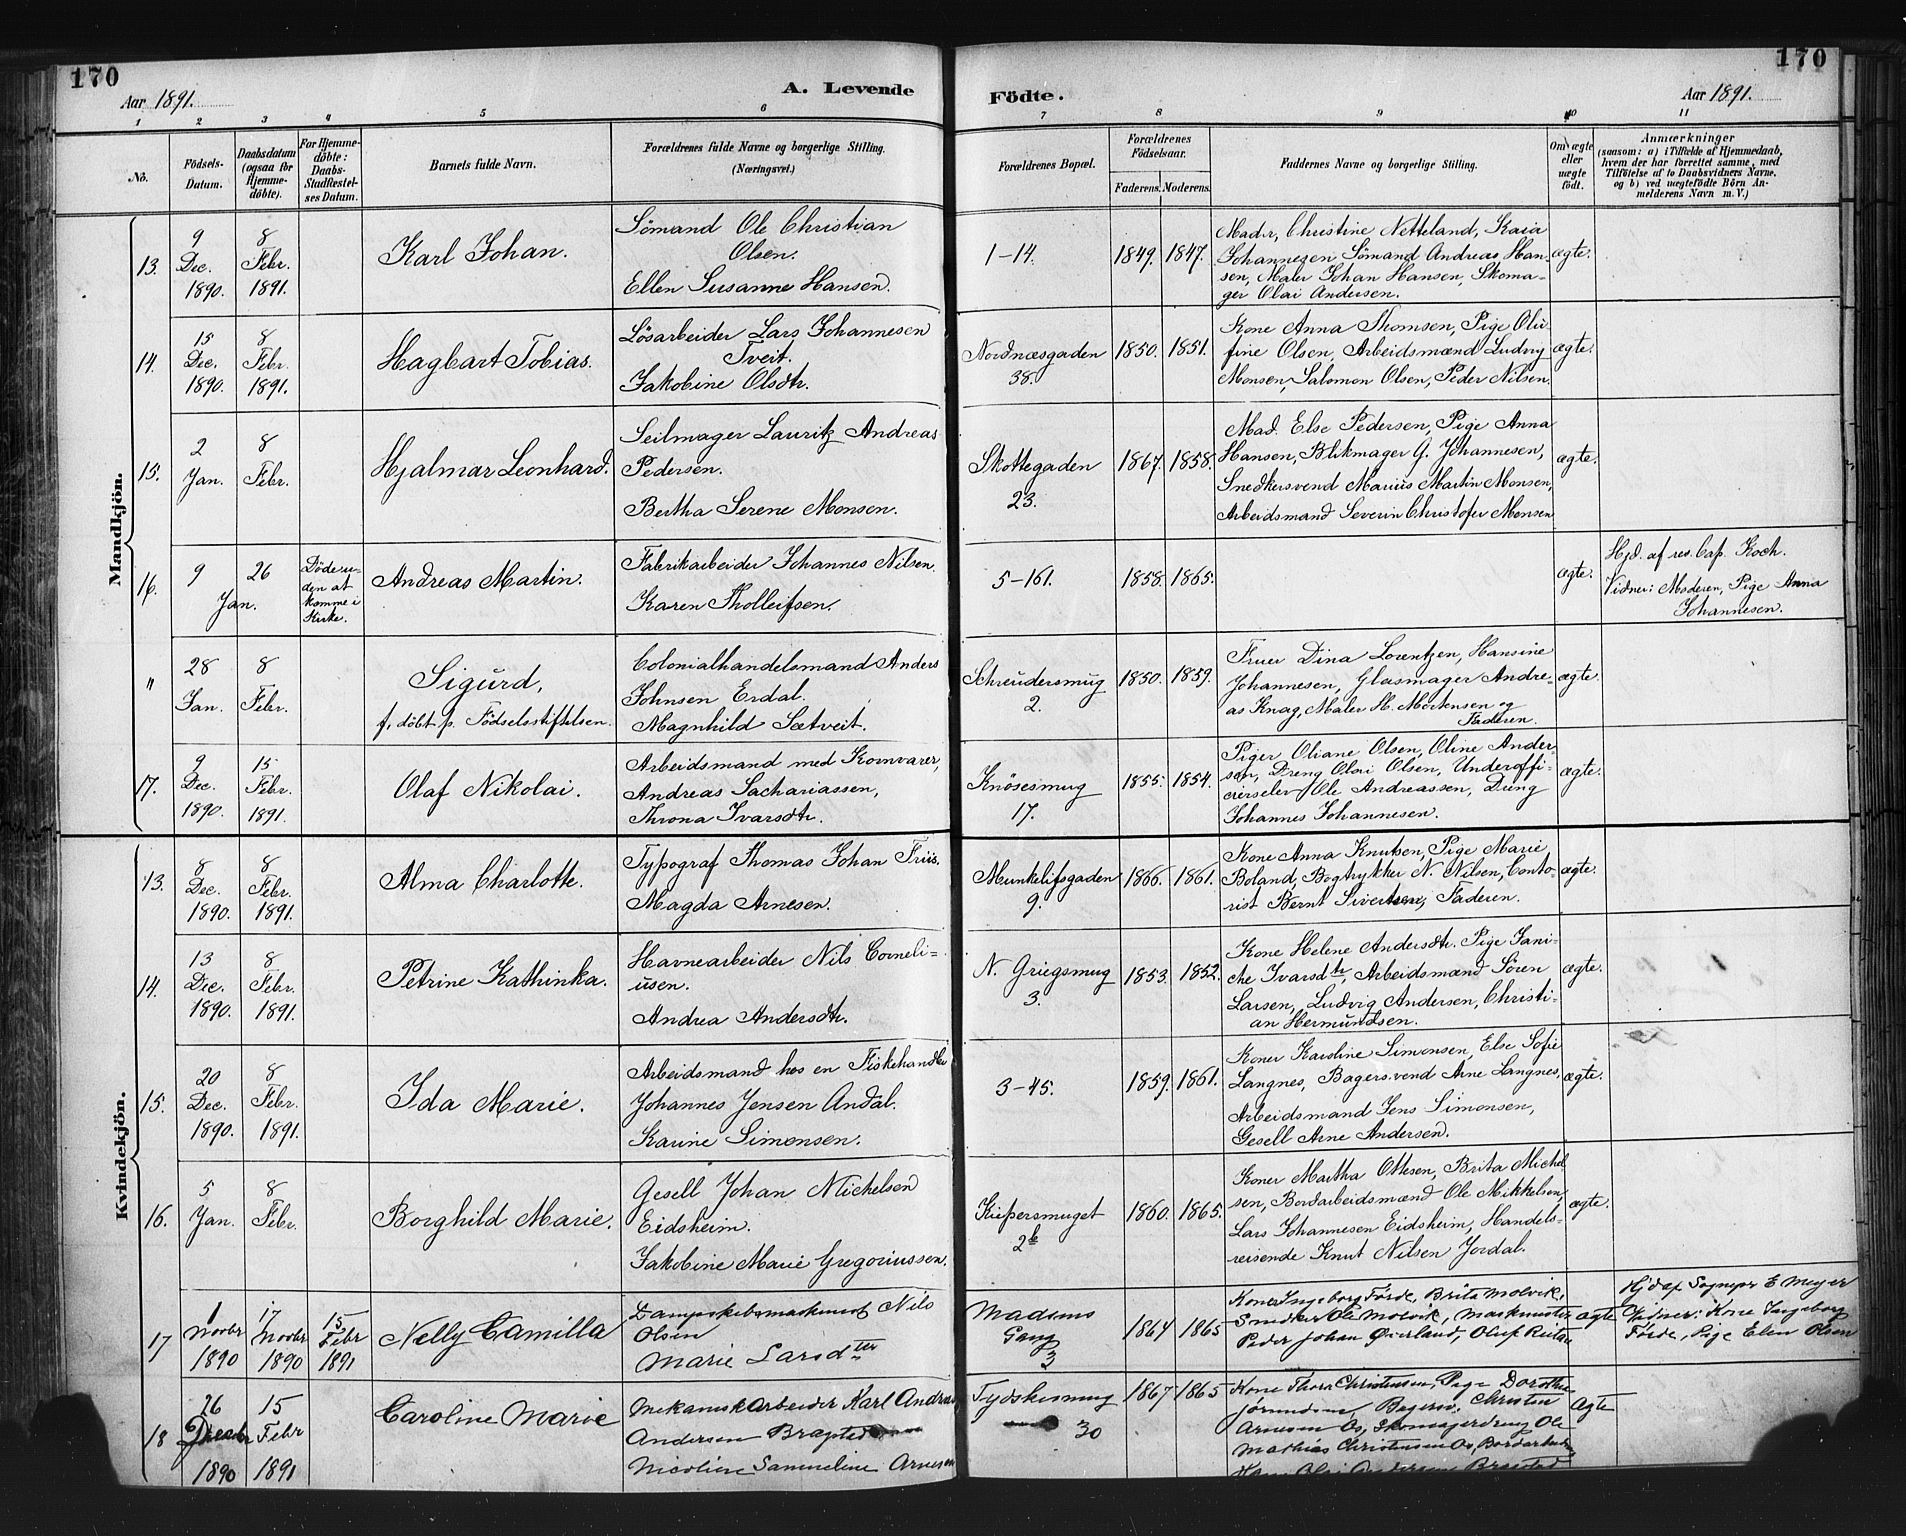 170
170
Aar 1891.
A. Levende
Födte.
Aar 1891.
1
2
3
4
5
6
7
8
9
10
11
No.
Födsels-
Datum.
Daabsdatum
(ogsaa for
Hjemme-
døbte).
For Hjemme-
døbte:
Daabs-
Stadfæstel-
ses Datum.
Barnets fulde Navn.
Forældrenes fulde Navne og borgerlige Stilling.
(Næringsvei.)
Forældrenes Bopæl.
Forældrenes
Födselsaar.
Faderens.
Moderens.
Faddernes Navne og borgerlige Stilling.
Om ægte
eller
uægte
født.
Anmærkninger
(saasom: a) i Tilfælde af Hjemmedaab,
hvem der har forrettet samme, med
Tilföielse af to Daabsvidners Navne,
og b) ved uægtefödte Börn An-
melderens Navn m. V.)
Mandkjön.
13.
9
Dec.
1890.
8
Febr.
1891.
Karl Johan.
Sömand Ole Christian
Olsen.
Ellen Susanne Hansen.
1-14.
1849.
1847.
Madr, Christine Netteland, Kaia
Johannesen Sömand Andreas Han-
sen, Maler Johan Hansen, Skoma-
ger Olai Andersen.
ægte.
14.
15
Dec.
1890.
8
Febr.
1891.
Hagbart Tobias.
Lösarbeider Lars Johannesen
Tveit.
Jakobine Olsdtr.
Nordnæsgaden
38.
1850.
1851.
Kone Anna Thomsen, Pige Oli-
fine Olsen, Arbeidsmænd Ludvig
Monsen, Salomon Olsen, Peder Nilsen.
ægte.
15.
2
Jan.
8
Febr.
Hjalmar Leonhard.
Seilmager Lauritz Andreas
Pedersen.
Bertha Serene Monsen.
Skottegaden
23.
1867.
1858.
Mad. Else Pedersen, Pige Anna
Hansen, Blikmager G. Johannesen,
Snedkersvend Marius Martin Monsen,
Arbeidsmand Severin Christofer Monsen
ægte.
16.
9
26
Jan.
Döde u-
den at
komme i
Kirke.
Andreas Martin.
Fabrikarbeider Johannes Nilsen.
Karen Tholleifsen.
5-161.
1858.
1865.
ægte.
Hjd. af res. Cap. Koch.
Vidner: Moderen, Pige Anna
Johannesen.
"
28
Jan.
8
Febr.
Sigurd,
f. döbt p. Födselsstiftelsen.
Colonialhandelsmand Anders
Johnsen Erdal.
Magnhild Sætveit.
Schreudersmug
2.
1850.
1859.
Fruer Dina Lorentzen, Hansine
Johannesen, Glasmager Andre-
as Knag, Maler H. Mortensen og
Faderen.
ægte.
17.
9
Dec.
1890.
15
Febr.
1891.
Olaf Nikolai.
Arbeidsmand med Kornvarer,
Andreas Sachariassen,
Throna Ivarsdtr.
Knösesmug
17.
1855.
1854.
Piger Oliane Olsen, Oline Ander-
sen, Dreng Olai Olsen, Underoffi-
cerselev Ole Andreassen, Dreng
Johannes Johannesen.
ægte.
Kvindekjön.
13.
8
Dec.
1890.
8
Febr.
1891.
Alma Charlotte.
Typograf Thomas Johan Friis.
Magda Arnesen.
Munkelifsgaden
9.
1866.
1861.
Kone Anna Knutsen, Pige Marie
Boland, Bogtrykker N. Nilsen, Conto-
rist Bernt Sivertsen, Faderen.
ægte.
14.
13
Dec.
1890.
8
Febr.
1891.
Petrine Kathinka.
Havnearbeider Nils Corneli-
usen.
Andrea Andersdtr.
N. Griegsmug
3.
1853.
1852.
Kone Helene Andersdtr. Pige Jani-
che Ivarsdtr, Arbeidsmænd Sören
Larsen, Ludvig Andersen, Christi-
an Hermundsen.
ægte.
15.
20
Dec.
1890.
8
Febr.
1891.
Ida Marie.
Arbeidsmand hos en Fiskehandler
Johannes Jensen Andal.
Karine Simonsen.
3-45.
1859.
1861.
Koner Karoline Simonsen, Else Sofie
Langnes, Bagersvend Arne Langnes,
Arbeidsmand Jens Simonsen,
Gesell Arne Andersen.
ægte.
16.
5
Jan.
8
Febr.
Borghild Marie.
Gesell Johan Michelsen
Eidsheim.
Jakobine Marie Gregoriussen.
Kippersmuget
2b
1860.
1865.
Koner Martha Ottesen, Brita Michel
sen, Bordarbeidsmænd Ole Mikkelsen,
Lars Johannesen Eidsheim, Handels-
reisende Knut Nilsen Jordal.
ægte.
17
1
Novbr
1890
17
Novbr
1890
15
Febr
1891
Nelly Camilla
Dampskibsmaskinist Nils
Olsen
Marie Larsdtter
Madsens
Gang
3
1864
1865
Kone Ingeborg Förde, Brita Molvik,
Snedker Ole Molvik, Maskinister
Peder Johan Öierland, Oluf
ægte
Hjd af Sognepr E Meyer
Vidner: Kone Ingeborg
Förde, Pige Elen Olsen
18
26
Decbr
1890
15
Febr
1891
Caroline Marie
Mekaniskarbeider Karl Andreas
Andersen Bragstad
Nicoline Sammeline Arnesen
Tydskesmug
30
1867
1865
Kone Thora Christensen, Pige Dorothea
Jörundsen, Bagersv. Christen
Arnesen Os, Skomagerdreng Ole
Mathias Christensen Os, Bordarbeider
Hans Olai Andersen Bragstad
Ægte